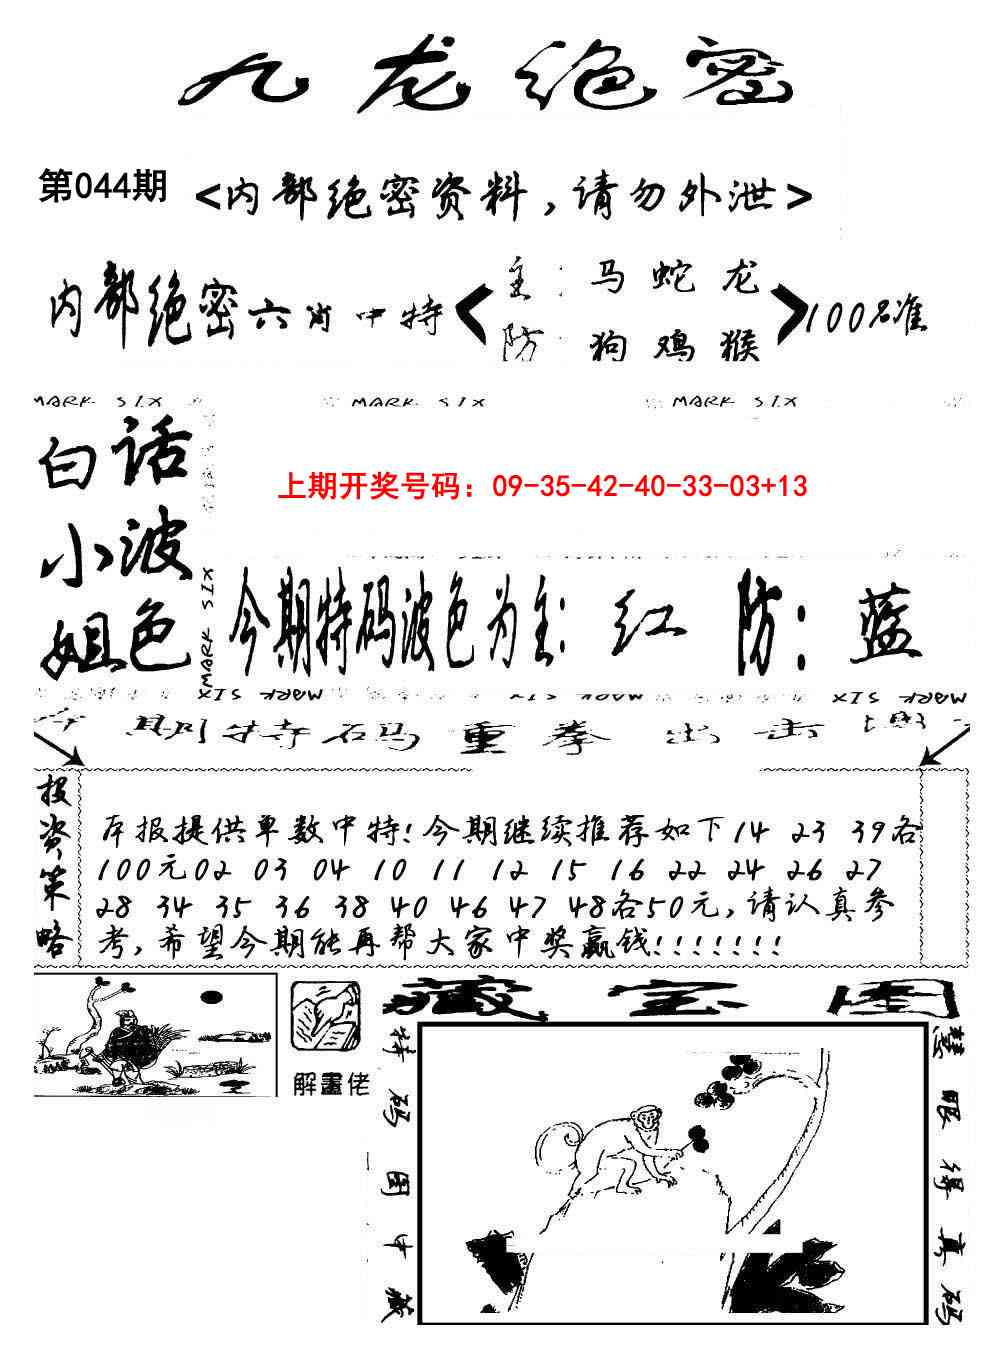 九龙绝密
第044期 <内部绝密资料,请勿外泄>
内部绝密六肖中特
主:马蛇龙
防:狗鸡猴
100%准
MARK SIX MARK SIX MARK SIX
白话
小波
姐色
MARK SIX
上期开奖号码：09-35-42-40-33-03+13
今期特码波色为主:红 防:蓝
MARK SIX MARK SIX MARK SIX MARK SIX
期特码重拳出击
投资策略
本报提供单数中特!今期继续推荐如下14 23 39各
100元02 03 04 10 11 12 15 16 22 24 26 27
28 34 35 36 38 40 46 47 48各50元,请认真参
考,希望今期能再帮大家中奖赢钱!!!!!!!
藏宝图
解畫佬
特码图中藏
慧眼得真码